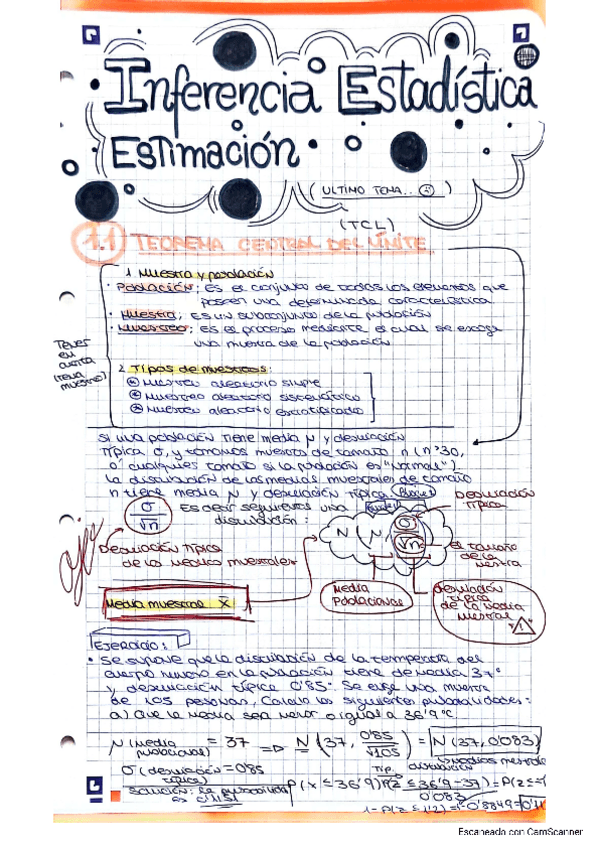 Inferencia Estadística
Estimación.
( ULTIMO TEMA.. )
(TCL)
1.1 TEOREMA CENTRAL DEL LÍMITE
1. Muestra y población
· Población: Es el conjunto de todos los elementos que
poseen una determinada característica
· Muestra: Es un subconjunto de la población
· Muestreo: Es el proceso mediante el cual se escoge
una muestra de la población
Tener
en
cuenta
(tema
muestreo)
2. Tipos de muestreos:
Muestreo aleatorio simple
Muestreo aleatorio sistemático
Muestreo aleatorio estratificado
Si una población tiene media μ y desviación
típica σ, y tomamos muestras de tamaño n (n>30,
o cualquier tamaño si la población es "Normal")
la distribución de las medias muestrales de tamaño
n tiene media μ y desviación típica
σ/√n Es decir seguiremos una
distribución:
Desviación
típica
N (μ, σ/√n)
ojo
Desviación típica
de la media muestrales
El tamaño
de la
muestra
Media muestral X̄
Media
Poblacional
Desviación
típica
de la media
muestral
Ejercicio:
· Se supone que la distribución de la temperatura del
cuerpo humano en la población tiene de media 37º
y desviación típica 0'85º. Se elige una muestra
de 105 personas, calcula las siguientes probabilidades:
a) Que la media sea menor o igual a 36'9ºC
μ (media
poblacional) = 37 => N (37, 0'85/√105) = N (37, 0'083)
σ (desviación típica) = 0'85
Tip. distribución
Solución: La probabilidad
es 0'1151
P(x ≤ 36'9) P(z ≤ 36'9-37/0'083) = P(z ≤ -1
1 - P(z ≤ 1'2) = 1 - 0'8849 = 0'11
Escaneado con CamScanner